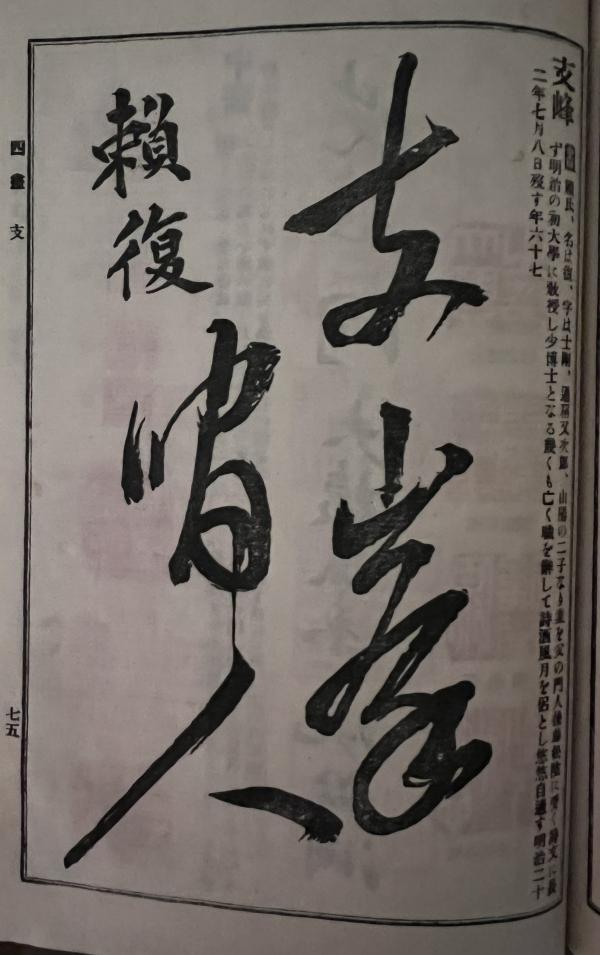 支峰 賴氏、名は復、字は士剛、通稱又次郎、山陽の二子なり業を父の門人後藤松陰に受く詩文に長
ず明治の初大學に敎授し少博士となる幾くも亡く職を辭して詩酒風月を侶とし悠悠自適す明治二十
二年七月八日歿す年六十七
支峯
賴復
人
四畫 支
七五